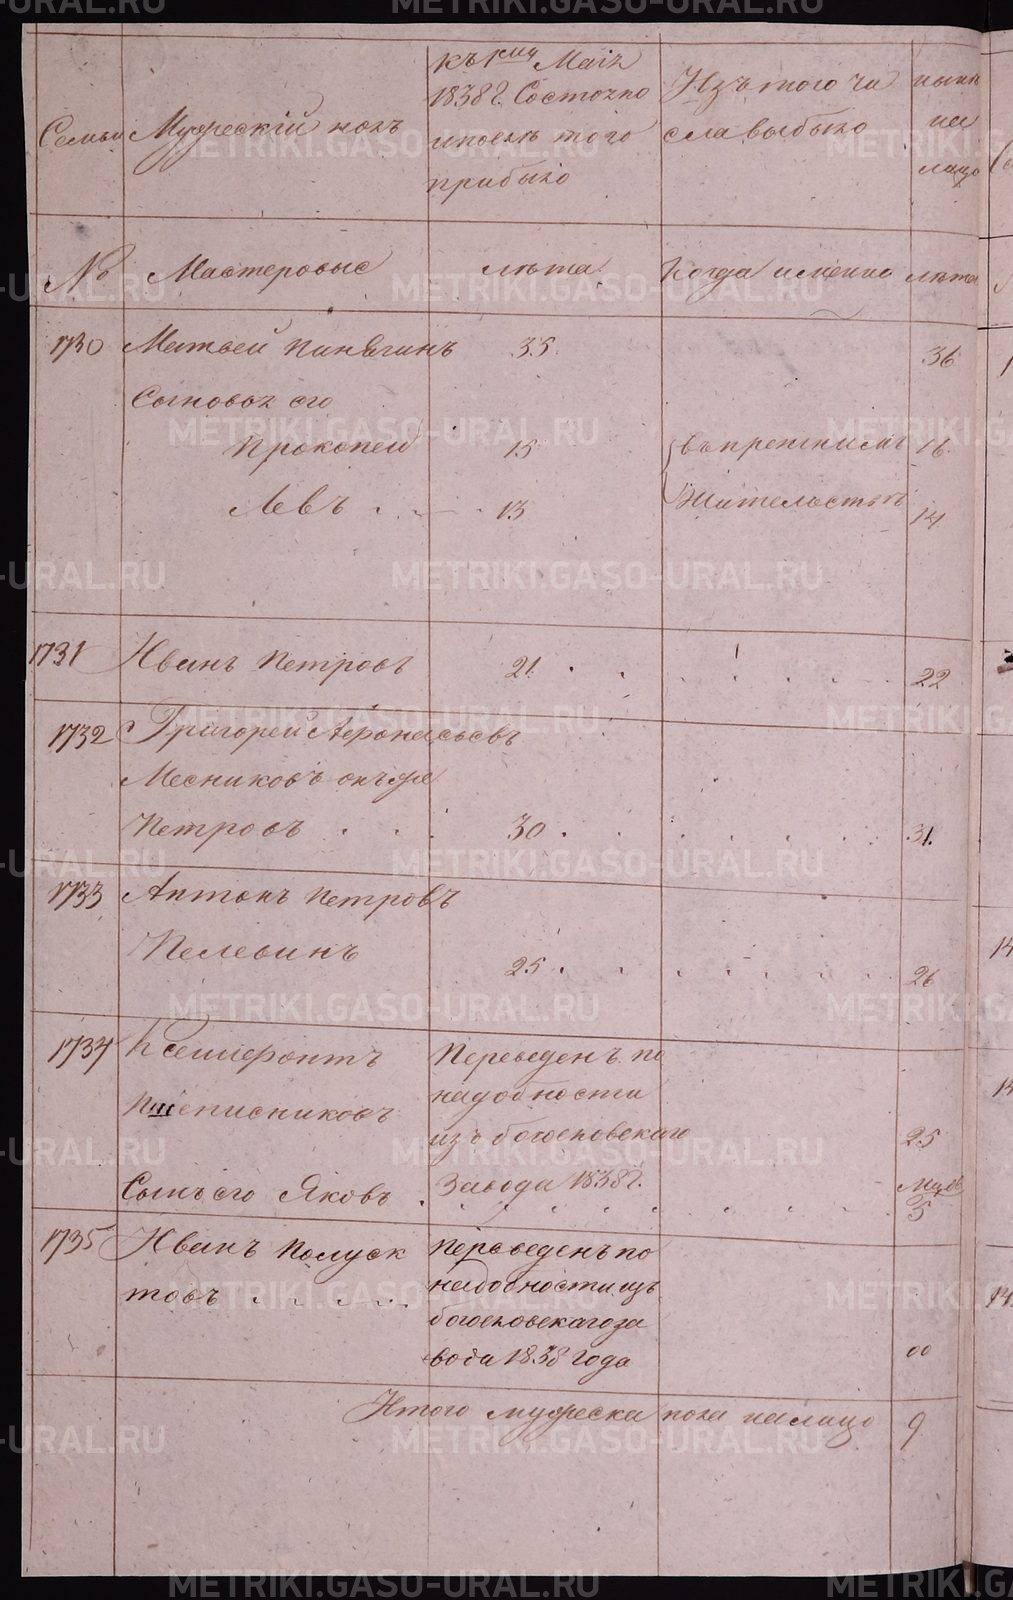 Семьи
Мужескій полъ
къ 1му Маія
1838 г. Состояло
и после того
прибыло
Изъ того чи
сла выбыло
ныне
на
лицо
№
Мастеровые
лѣта
Когда именно
лѣта
1730 Матвей Пинягинъ 35 36
Сыновья его
Прокопей 15 въ прежнимъ 16
Левъ 13 Жительствѣ 14
1731 Иванъ Петровъ 21 22
1732 Григорей Афонасьевъ
Месниковъ онъ же
Петровъ 30 31
1733 Антонъ Петровъ
Пелевинъ 25 26
1734 Ксенофонтъ Переведенъ по
Пшеписниковъ надобности
изъ богословскаго 25
Сынъ его Яковъ Завода 1838 г. 5
1735 Иванъ Полуек Переведенъ по
товъ надобности изъ
богословскаго за
вода 1838 года 00
Итого мужеска пола на лицо 9
METRIKI.GASO-URAL.RU